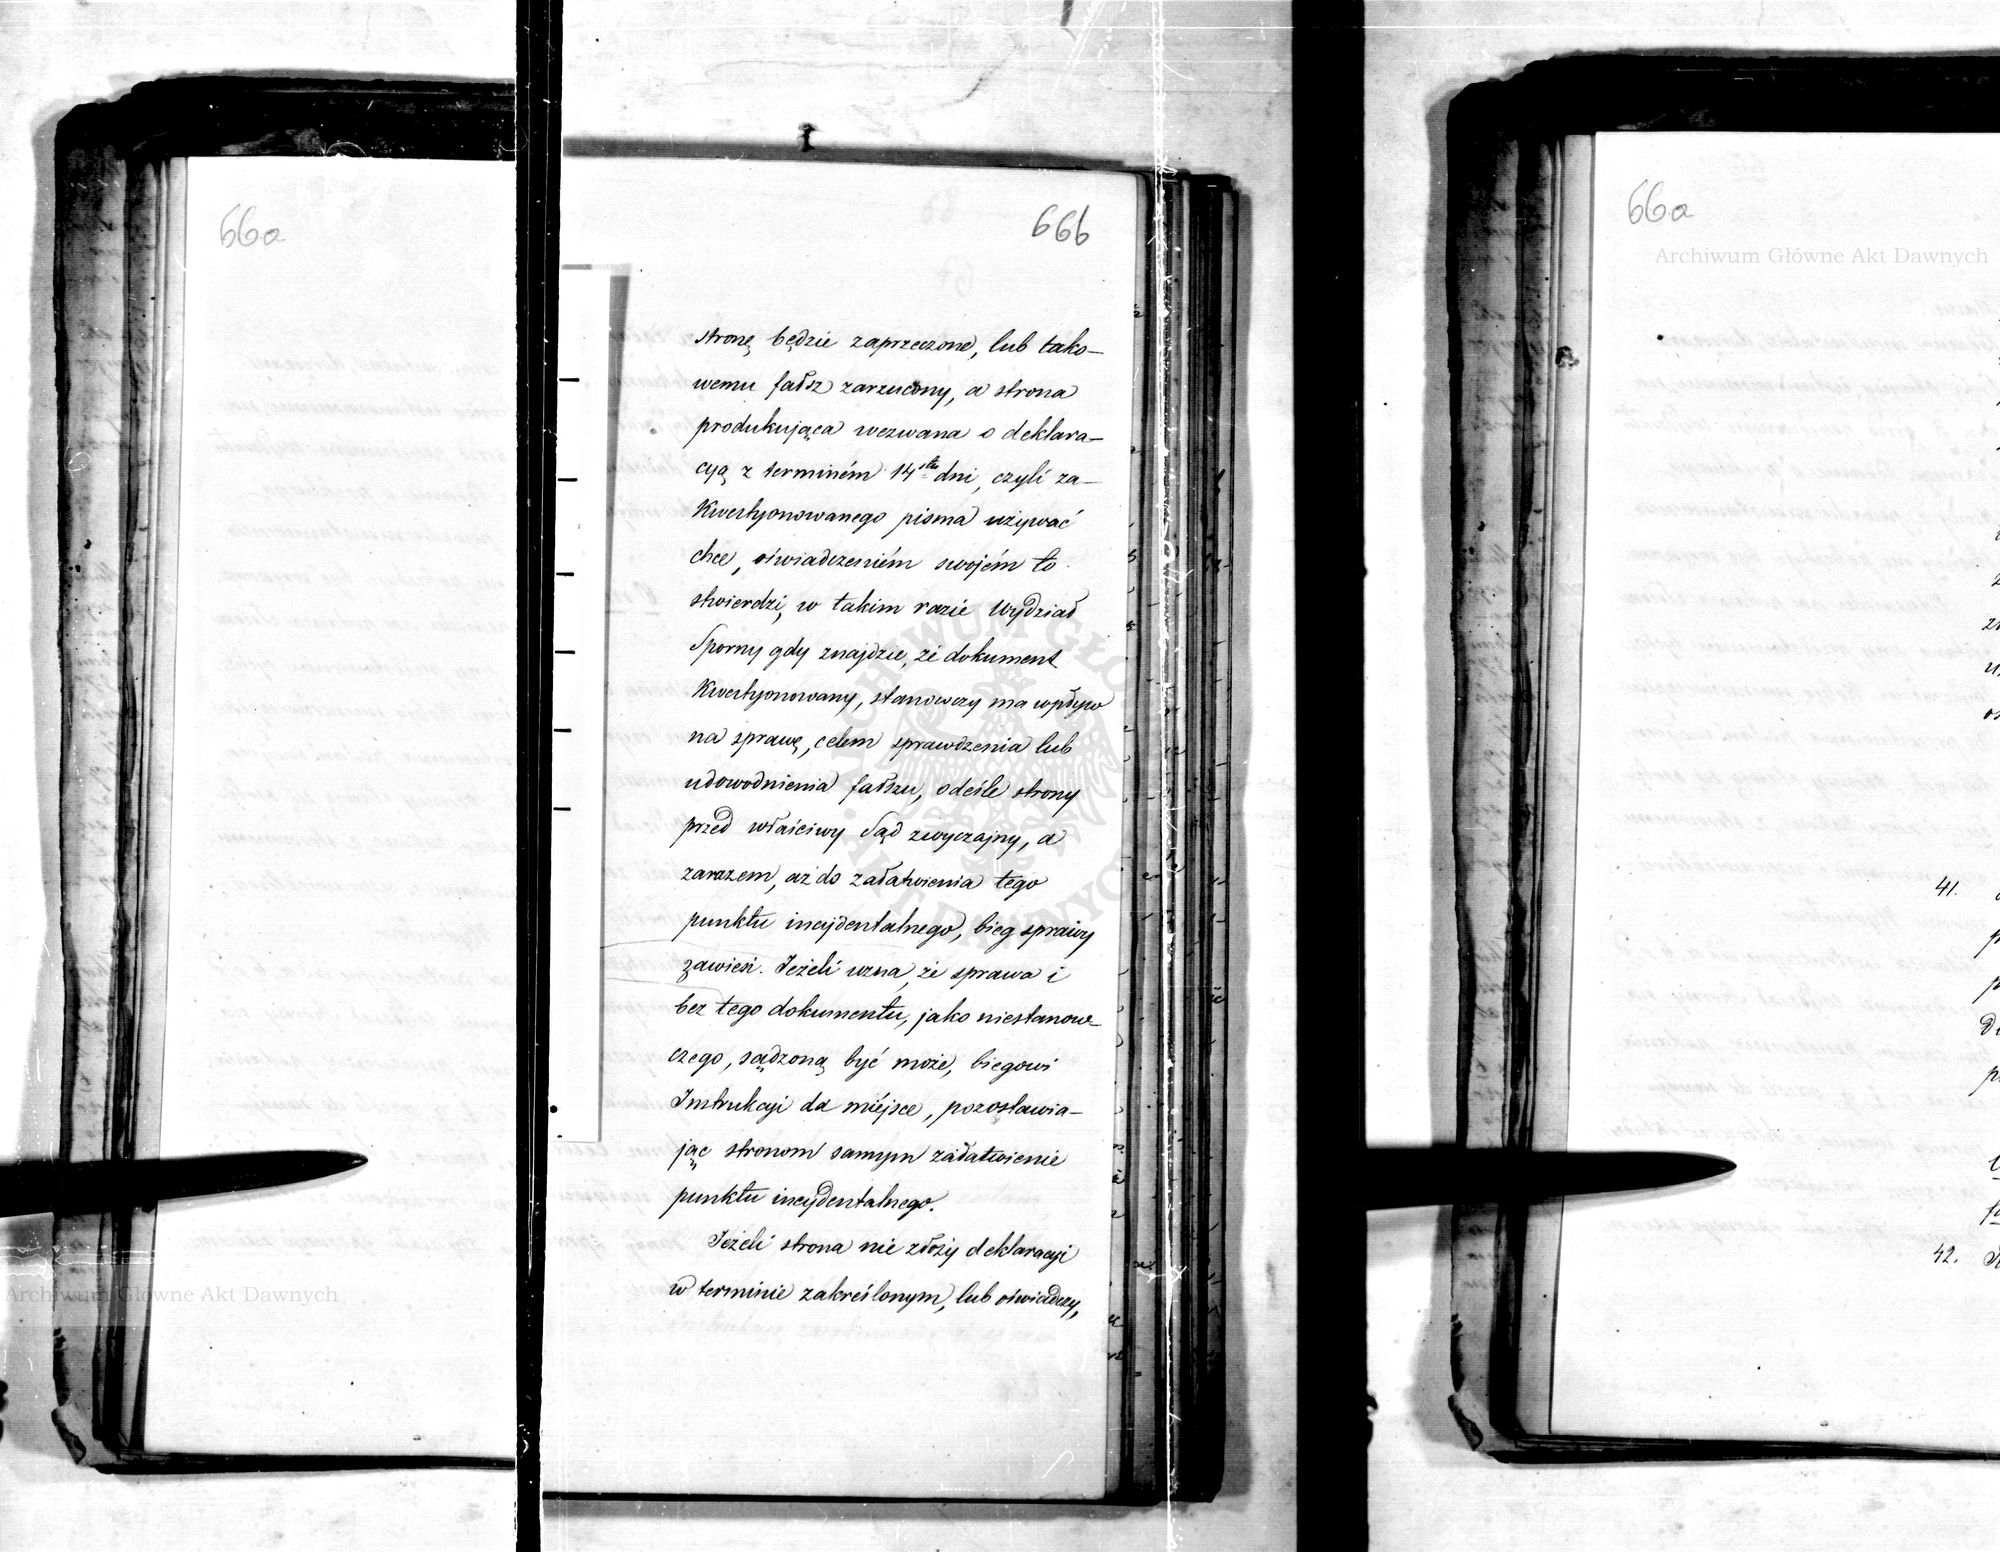 66a
66b
stronę będzie zaprzeczone, lub tako—
wemu fałsz zarzucony, a strona
produkująca wezwana o deklara—
cyą z terminém 14stu dni, czyli za—
kwestyonowanego pisma używać
chce, oświadczeniém swojém to
stwierdzi, w takim razie Wydział
Sporny gdy znajdzie, że dokument
kwestyonowany, stanowczy ma wpływ
na sprawę, celem sprawdzenia lub
udowodnienia fałszu, odeśle strony
przed właściwy Sąd zwyczajny, a
zarazem, aż do załatwienia tego
punktu incydentalnego, bieg sprawy
zawiesi. Jeżeli uzna, że sprawa i
bez tego dokumentu, jako niestanow—
czego, sądzoną być może, biegowi
Instrukcyi da miéjsce, pozostawia—
jąc stronom samym załatwienie
punktu incydentalnego.
Jeżeli strona nie złoży deklaracyi
w terminie zakreślonym, lub oświadczy,
Archiwum Główne Akt Dawnych
66a
Archiwum Główne Akt Dawnych
41.
42.